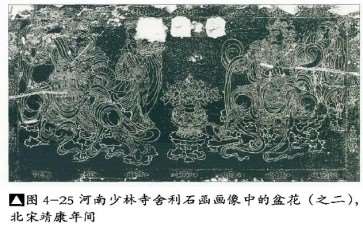 ▲图 4-25 河南少林寺舍利石函画像中的盆花（之二），
北宋靖康年间